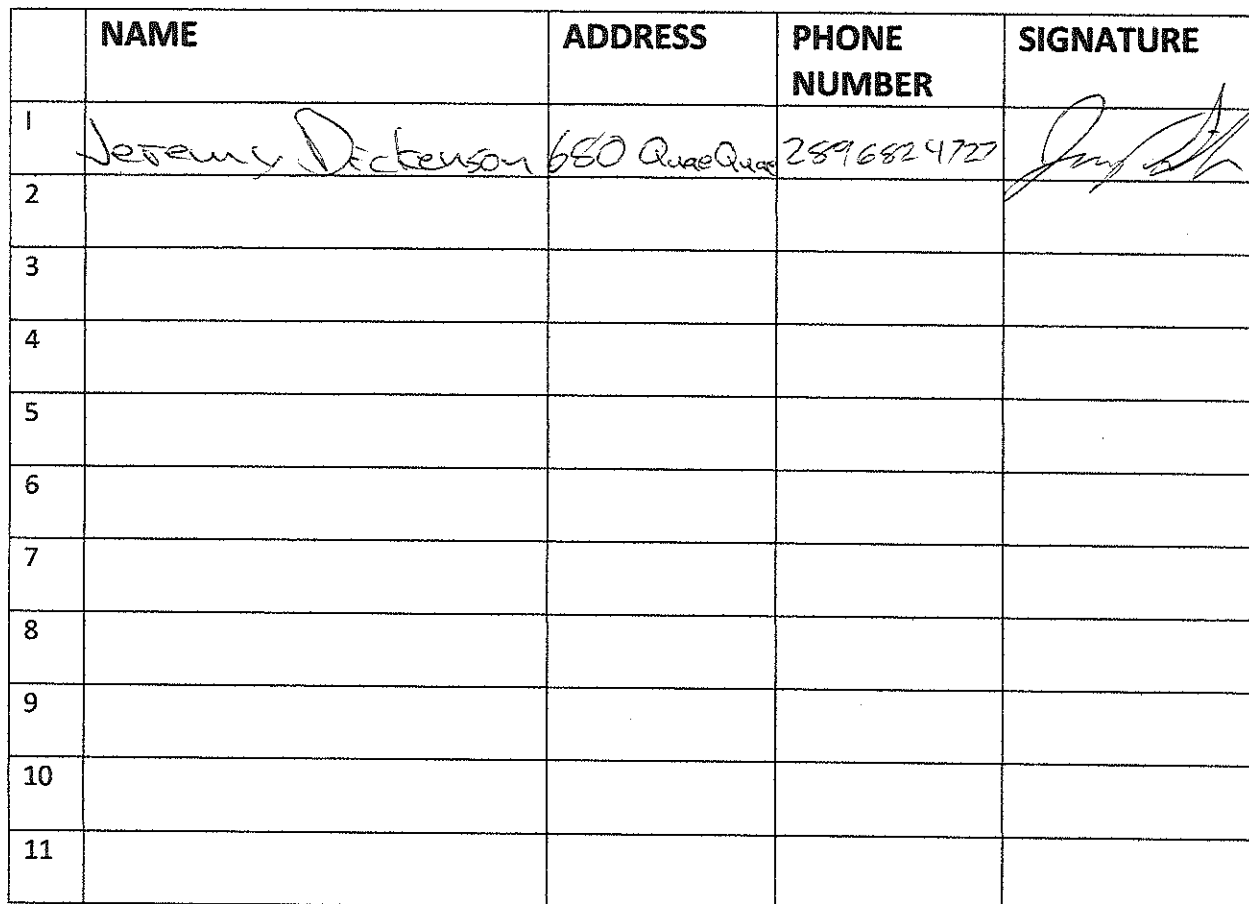 NAME ADDRESS PHONE NUMBER SIGNATURE
1 Jeremy Dickenson 680 QuaeQuae 2896824727
2
3
4
5
6
7
8
9
10
11